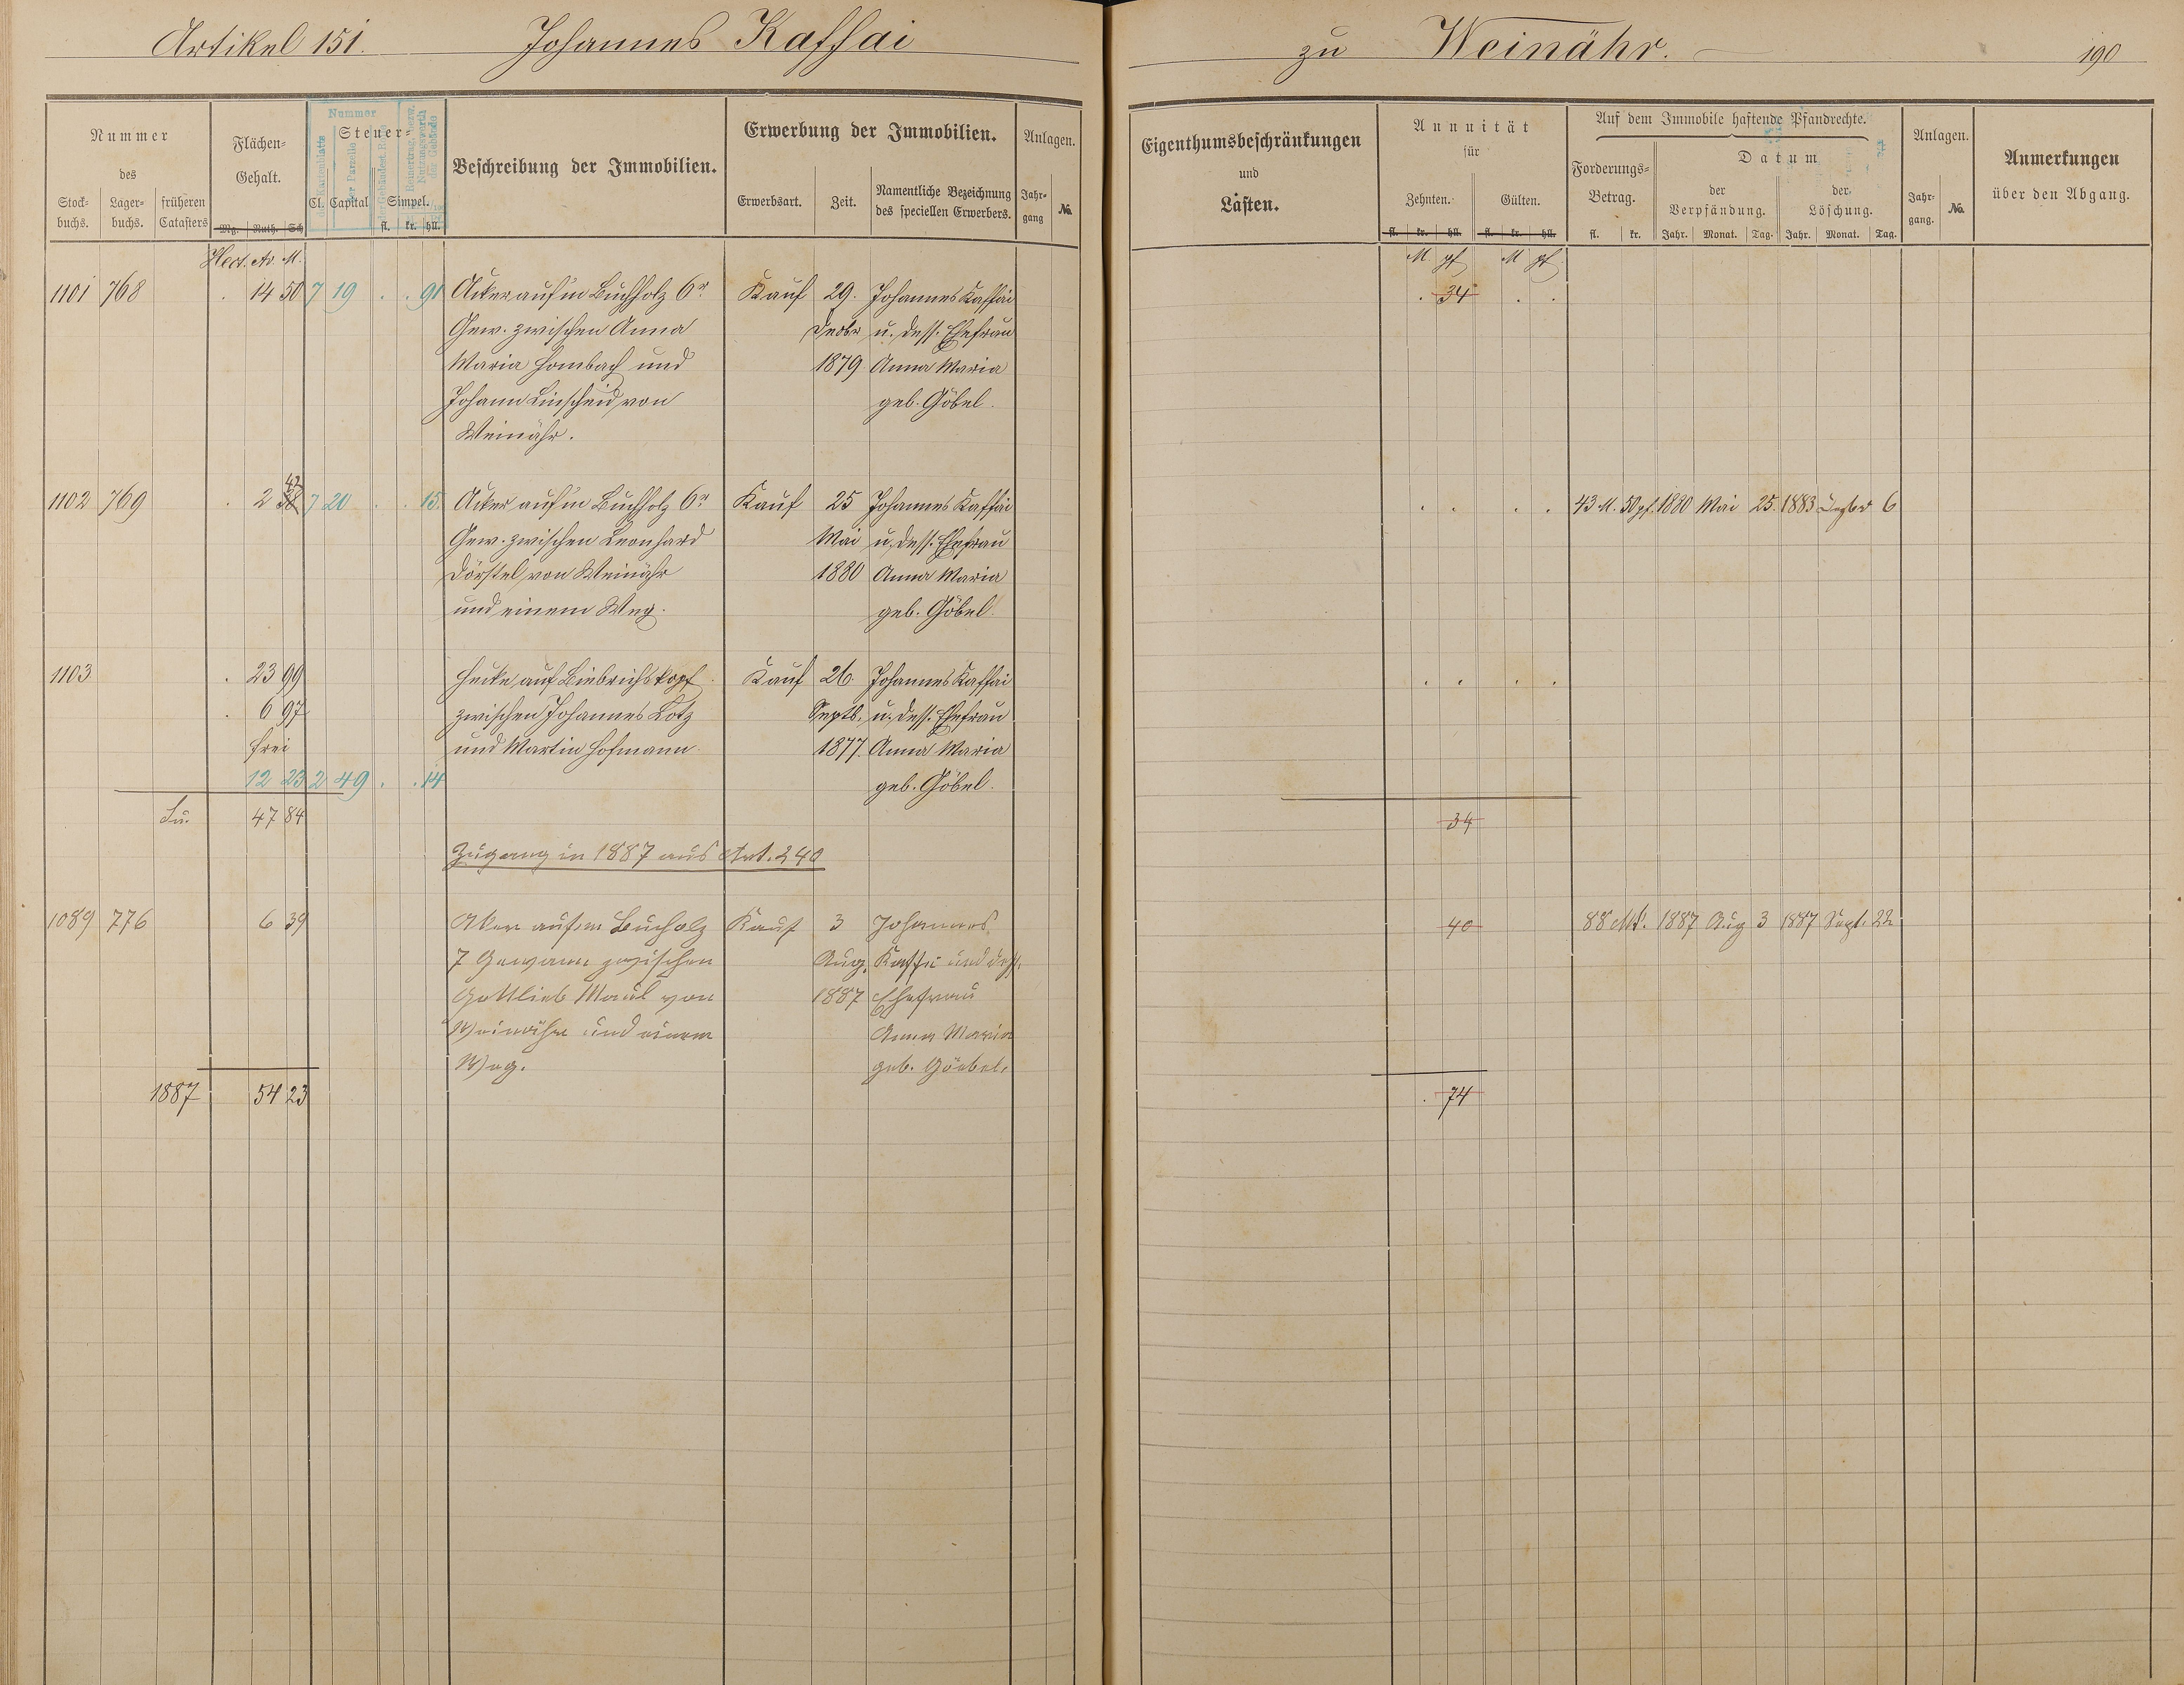 Artikel 151. Johannes Kaffai
zu Weinähr. 190
Nummer
des
Stock-
buchs.
Lager-
buchs.
früheren
Catasters
Flächen-
Gehalt.
Mg. Ruth. Sch
Nummer
Steuer-
Cl. Capital Simpel.
fl. kr. hll.
Beschreibung der Immobilien.
Erwerbung der Immobilien.
Erwerbsart. Zeit.
Namentliche Bezeichnung
des speciellen Erwerbers.
Anlagen.
Jahr-
gang
No.
Eigenthumsbeschränkungen
und
Lasten.
Annuität
für
Zehnten. Gülten.
fl. kr. hll. fl. kr. hll.
Auf dem Immobile haftende Pfandrechte.
Forderungs-
Betrag.
fl. kr.
Datum
der
Verpfändung.
der
Löschung.
Jahr. Monat. Tag. Jahr. Monat. Tag.
Anlagen.
Jahr-
gang.
No.
Anmerkungen
über den Abgang.
Hect. Ar. M. M pf M pf
1101 768 . 14 50 7 19 . . 91 Acker auf'm Buchholz 6r Kauf 29. Johannes Kaffai . 34 . .
Gew. zwischen Anna Decbr u. dess. Ehefrau
Maria Hombach und 1879 Anna Maria
Johann Linscheid von geb. Göbel.
Weinähr.
42
1102 769 . 2 38 7 20 . . 15. Acker auf'm Buchholz 6r Kauf 25 Johannes Kaffai . . . . 43 M. 50 pf. 1880 Mai 25. 1883 Dezbr 6
Gew. zwischen Leonhard Mai u. dess. Ehefrau
Dörstel von Weinähr 1880 Anna Maria
und einem Weg. geb. Göbel.
1103 . 23 99 Hecke auf Biebrichskopf Kauf 26. Johannes Kaffai . . . .
. 6 97 zwischen Johannes Lotz Septb. u. dess. Ehefrau
frei und Martin Hofmann 1877. Anna Maria
12 23 2 49 . . 14 geb. Göbel.
Su. 47 84 34
Zugang in 1887 aus Art. 240
1089 776 6 39 Aker auf'm Bucholz Kauf 3 Johannes 40 88 Mk. 1887 Aug 3 1887 Sept. 22
7 Gewann zwischen Aug. Kaffei und dess.
Gottlieb Maul von 1887 Ehefrau
Weinähr und einem Anna Maria
Weg. geb. Göebel.
1887 54 23 . 74